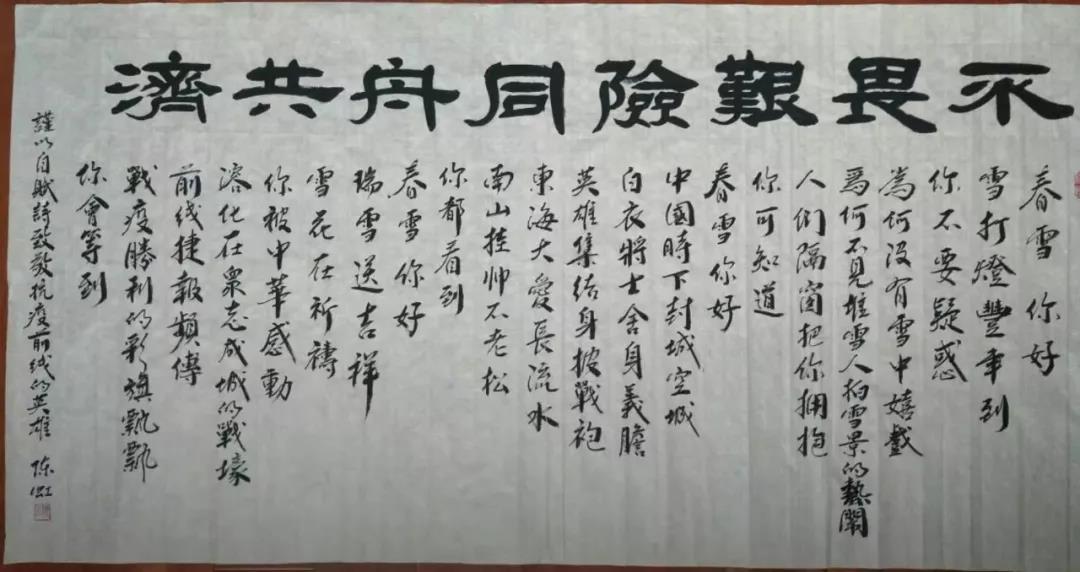 不畏艱險同舟共濟
春雪你好
雪打燈豐年到
你不要疑惑
為何没有雪中嬉戲
為何不見堆雪人拍雪景的熱鬧
人們隔窗把你拥抱
你可知道
春雪你好
中國時下封城空城
白衣將士舍身義膽
英雄集结身披戰袍
東海大愛長流水
南山挂帅不老松
你都看到
春雪你好
瑞雪送吉祥
雪花在祈禱
你被中華感動
溶化在眾志成城的戰壕
前线捷報頻傳
戰疫勝利的彩旗飄飄
你會等到
謹以自賦詩致敬抗疫前线的英雄 陈虹